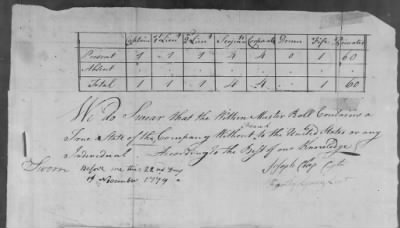 Captain 1st Lieut 2d Lieut Serjts Corporals Drum Fife Privates
Present 1 1 1 4 4 0 1 60
Absent . . . . . . . .
Total 1 1 1 4 4 . 1 60
We Do Swear that the Within Muster Roll Contains a
True State of the Company Without Fraud to the United States or any
Individual According to the Best of our Knowledge
Sworn Before me this 22nd Day
of November 1779
Joseph Capt
Lieut